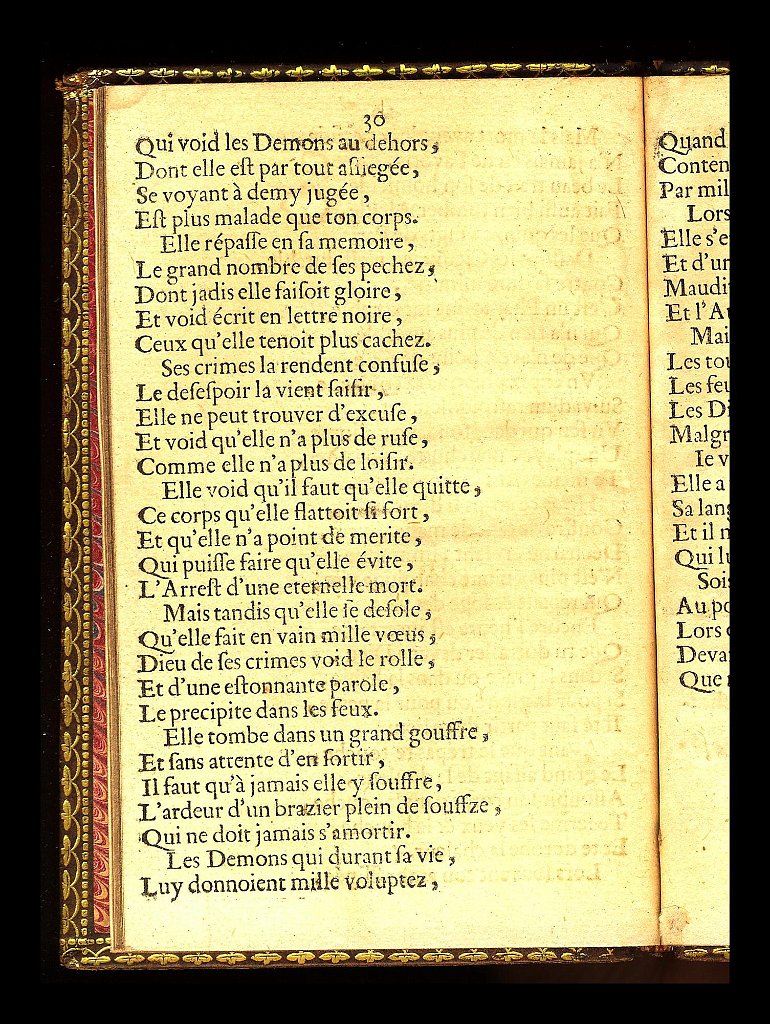 30
Qui void les Demons au dehors,
Dont elle eſt par tout aſſiegée,
Se voyant à demy jugée,
Eſt plus malade que ton corps.
Elle répaſſe en ſa memoire,
Le grand nombre de ſes pechez,
Dont jadis elle faiſoit gloire,
Et void écrit en lettre noire,
Ceux qu'elle tenoit plus cachez.
Ses crimes la rendent confuſe,
Le deſeſpoir la vient ſaiſir,
Elle ne peut trouver d'excuſe,
Et void qu'elle n'a plus de ruſe,
Comme elle n'a plus de loiſir.
Elle void qu'il faut qu'elle quitte,
Ce corps qu'elle flattoit ſi fort,
Et qu'elle n'a point de merite,
Qui puiſſe faire qu'elle évite,
L'Arreſt d'une eternelle mort.
Mais tandis qu'elle ſe deſole,
Qu'elle fait en vain mille vœus,
Dieu de ſes crimes void le rolle,
Et d'une eſtonnante parole,
Le precipite dans les feux.
Elle tombe dans un grand gouffre,
Et ſans attente d'en ſortir,
Il faut qu'à jamais elle y ſouffre,
L'ardeur d'un brazier plein de ſouffze,
Qui ne doit jamais s'amortir.
Les Demons qui durant ſa vie,
Luy donnoient mille voluptez,
Quand
Conten
Par mil
Lors
Elle s'e
Et d'un
Maudi
Et l'A
Mai
Les to
Les feu
Les D
Malgr
Ie v
Elle a
Sa lan
Et il n
Qui lu
Sois
Au po
Lors
Deva
Que